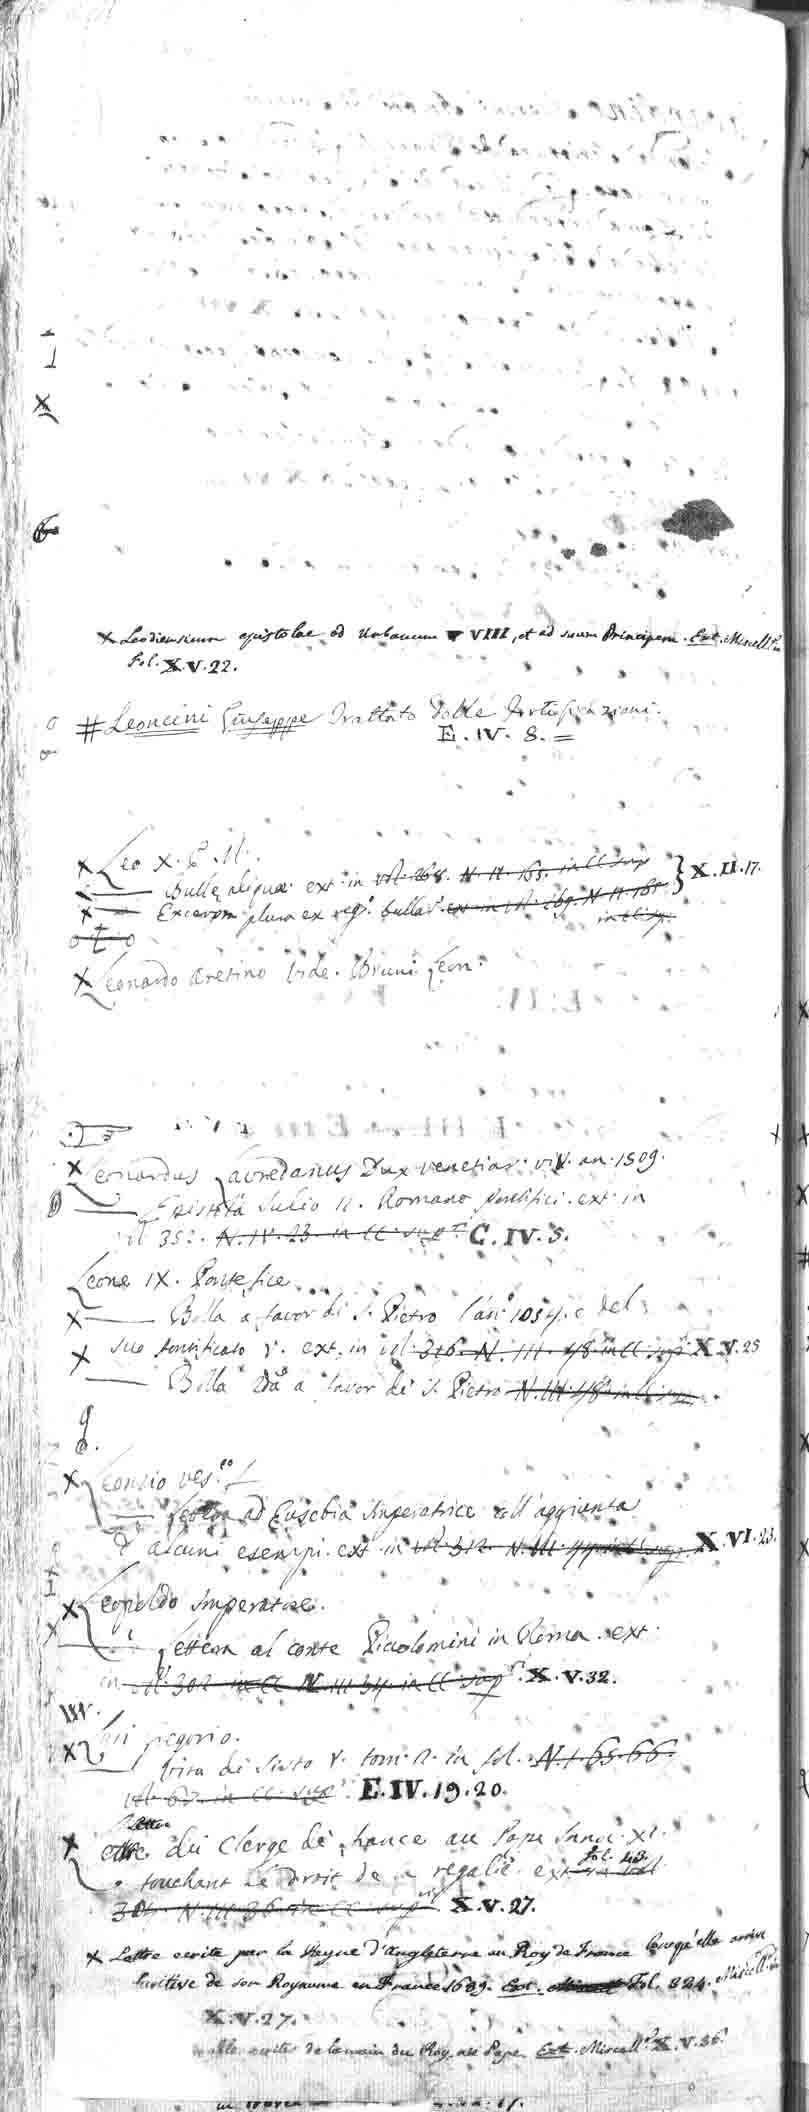 × Leodiensium epistolae ad Urbanum VIII, et ad suum Principem. Ext. Miscell. in
Fol. X.V.22.
# Leoncini Giuseppe Trattato delle Fortificazioni.
E.IV.8. =
× Leo X. P. M.
Bullę aliquæ ext. in vol. 268. N. II. 165. in CC sup } X.II.17.
× Excerpta plura ex reg. bullar. ex in vol. 269. N II 165
in CC sup.
× Leonardo Aretino Vide. Bruni Leon.
× Leonardus Lauredanus Dux venetiar. viv. an. 1509.
Epistola Julio II. Romano Pontifici. ext. in
vol 352. N. IV. 23. in CC. sup. C.IV.5.
Leone IX. Pontefice
× Bolla a favor di S. Pietro l'an. 1054. e del
suo Pontificato V. ext. in vol. 316. N. III. 48 in CC sup. X.V.25
× Bolla 2da a favor di S. Pietro N. III. 48 in CC sup.
× Leonzio Ves.co
Lettera ad Eusebia Imperatrice coll'aggiunta
d'alcuni esempi. ext. in vol. 312. N. III. 44 in CC sup. X.VI.23.
× Leopoldo Imperatore.
Lettera al conte Piccolomini in Roma. ext.
in vol. 302 in CC N. III 34. in CC. sup. X.V.32.
× Leti Gregorio.
Vita di Sisto V. tom. 2. in fol. N. I. 65. 66.
vol. 67. in CC. sup. E.IV.19.20.
Lettre
× du Clergé de France au Pape Innoc. XI.
touchant Le Droit de la regalie. ext. in vol fol. 43.
304. N. III 36. in CC. sup. X.V.27.
× Lettre ecrite par la Reyne d'Angleterre au Roy de France lorsqu'elle arriva
fuitive de son Royaume en France 1689. Ext. Miscell Fol. 324. Miscell. in
X.V.27.
ecrites de la main du Roy au Pape Ext. Miscell. X.V.36.